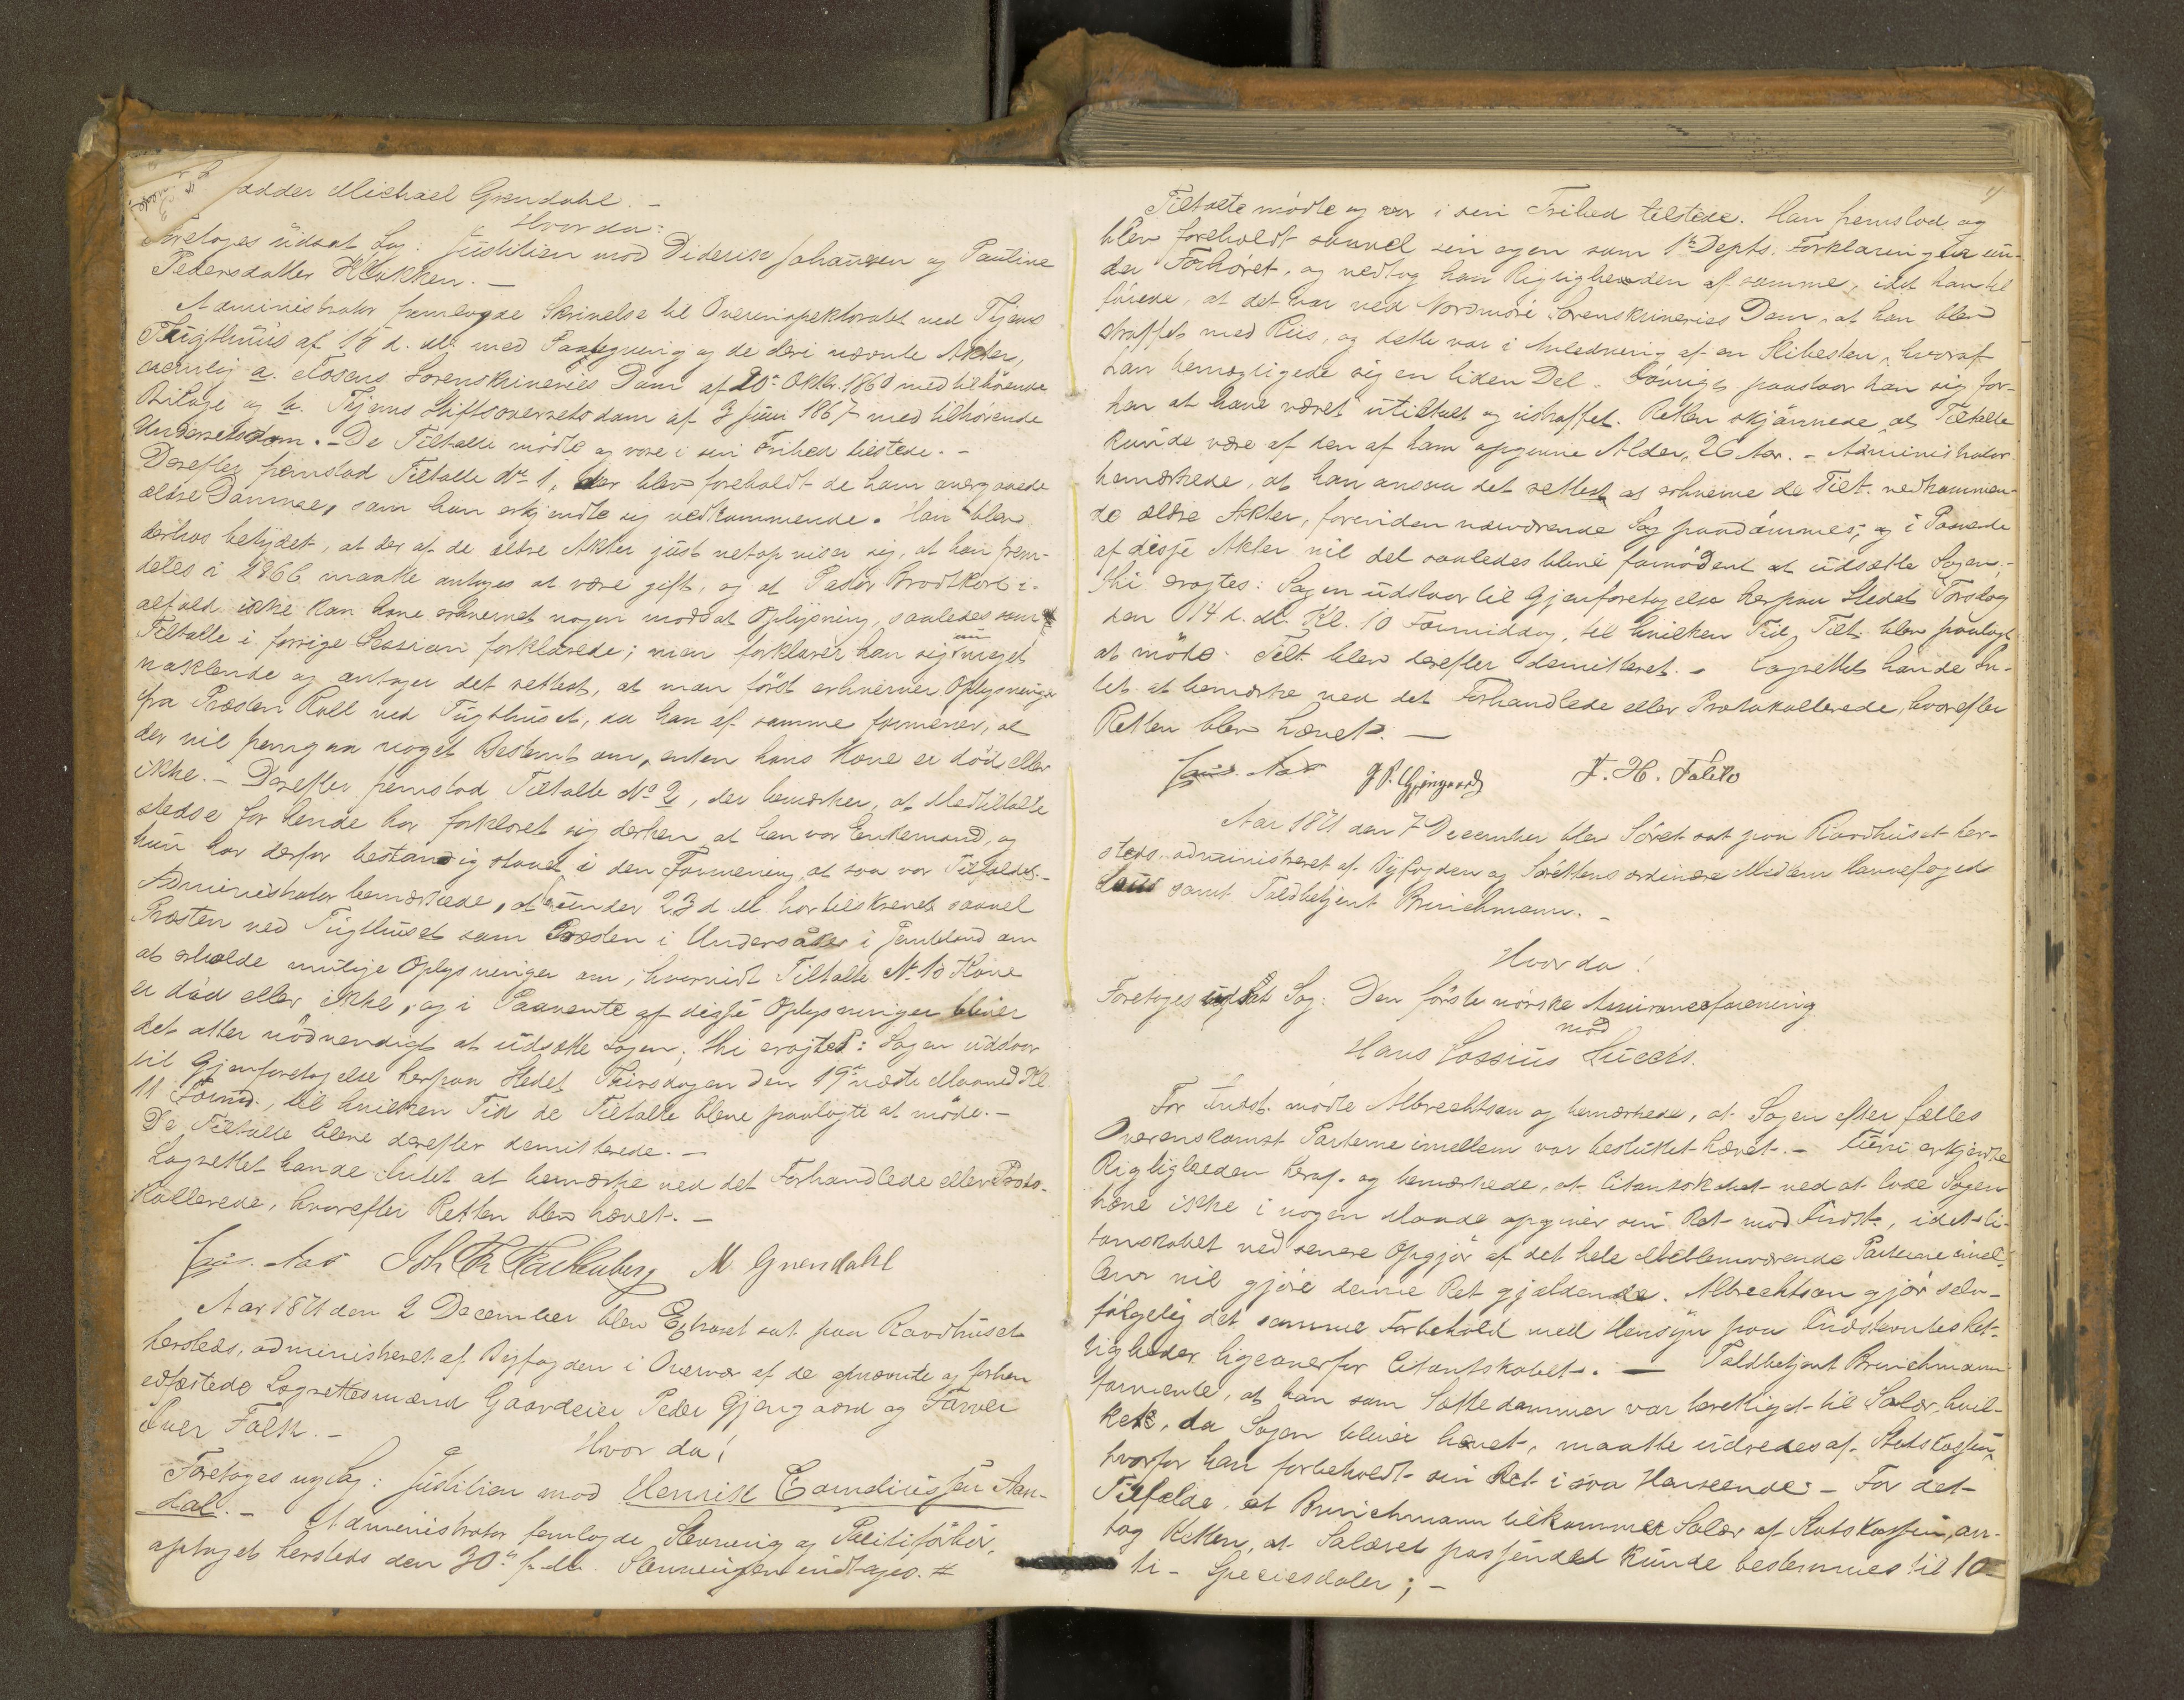 adder Michael Grendahl. –
Hvorda:
Foretoges üdsat Sag: Justitien mod Diderik Johansen og Pauline
Pedersdatter Klokken. –
Administrator fremlagde Skrivelse til Overinspektoratet ved Thjems
Tugthuus af 15 d. M. med Paategning og de deri nævnte Akter,
nemlig a. Fosens Sorenskriveries Dom af 20de Oktbr. 1860 med tilhørende
Bilage og b. Thjems Stiftsoverretsdom af 3 Juni 1867 med tilhørende
Underretsdom. – De Tiltalte mødte og vare i sin Frihed tilstede. –
Derefter fremstod Tiltalte No 1, der blev foreholdt de ham overgaaede
ældre Domme, som han erkjendte sig vedkommende. Han blev
derhos betydet, at der af de ældre Akter just netop viser sig, at han frem-
deles i 1866 maatte antages at være gift, og at Pastor Brodtkorb i-
alfald ikke kan have erhvervet nogen modsat Oplysning, saaledes som
Tiltalte i forrige Session forklarede; men forklarer han sig nu meget
vaklende og antager det rettest, at man først erhverver Oplysninger
fra Præsten Roll ved Tugthuset, da han af samme formener, at
der vil fremgaa noget Bestemt om, enten hans Kone er død eller
ikke. – Derefter fremstod Tiltalte No 2, der bemærker, at Medtiltalte
stedse for hende har forklaret sig derhen at han var Enkemand, og
hun har derfor bestandig staaet i den Formening, at saa var Tilfældet. –
Administrator bemærkede, at under 23 d. M. har tilskrevet saavel
Præsten ved Tugthuset som Præsten i Undersåker i Jemtland om
at erholde mulige Oplysninger om, hvorvidt Tiltalte No 1s Kone
er død eller ikke, og i Paavente af disse Oplysninger bliver
det atter nödvendigt at udsætte Sagen; thi eragtes: Sagen udstaar
til Gjenforetagelse herpaa Stedet Thirsdagen den 19de næste Maaned Kl.
11 Formd., til hvilken Tid de Tiltalte bleve paalagte at møde. –
De Tiltalte bleve derefter demitterede. –
Lagrettet havde Intet at bemærke ved det Forhandlede eller Proto-
kollerede, hvorefter Retten blev hævet. –
M. Grendahl
Aar 1871 den 2 December blev Extraret sat paa Raadhuset
hersteds, administreret af Byfogden i Overvær af de opnævnte og forhen
edfæstede Lagrettesmænd Gaardeier Peder Gjengaard og Farver
Iver Falk. –
Hvor da!
Foretoges ny Sag: Justitien mod Henrik Corneliussen Aan-
dal. – Administrator fremlagde Stevning og Politiforhør,
optaget hersteds den 30te f. M. Stevningen indtages. #
Tiltalte mødte og var i sin Frihed tilstede. Han fremstod og
blev foreholdt saavel sin egen som 1ste Depts. Forklaringer un-
der Forhøret, og vedtog han Rigtigheden af samme, idet han til
föiede, at det var ved Nordmøre Sorenskriveries Dom, at han blev
straffet med Riis, og dette var i Anledning af en Slibesten, hvoraf
han bemægtigede sig en liden Del. Iøvrigt paastaar han sig for-
hen at have været utiltalt og ustraffet. Retten skjønnede at Tiltalte
kunde være af den af ham opgivne Alder, 26 Aar. – Administrator
bemærkede, at han ansaa det rettest at erhverve de Tilt. vedkommen-
de ældre Akter, forinden nærværende Sag paadömmes, og i Paavente
af disse Akter vil det saaledes blive fornødent at udsætte Sagen; –
thi eragtes: Sagen udstaar til Gjenforetagelse herpaa Stedet Torsdag
den 14 d. M. Kl. 10 Formiddag, til hvilken Tid Tilt. blev paalagt
at møde. Tilt. blev derefter demitteret. – Lagrettet havde In-
tet at bemærke ved det Forhandlede eller Protokollerede, hvorefter
Retten blev hævet. –
Aar 1871 den 7 December blev Søret sat paa Raadhuset her-
steds administreret af Byfogden og Sørettens ordinære Medlem Havnefoged
samt Toldbetjent Brinchmann. –
Hvor da!
Foretoges udsat Sag: Den første norske Assuranceforening
mod
Hans Lossius
For Indst. mødte Albrechtson og bemærkede, at Sagen efter fælles
Overenskomst Parterne imellem var besluttet hævet. – erkjendte
Rigtigheden heraf og bemærkede, at Citantskabet ved at lade Sagen
hæve ikke i nogen Maade opgiver sin Ret mod Indst., idet Ci-
tantskabet ved senere Opgjør af det hele Mellemværende Parterne imel-
lem vil gjøre denne Ret gjældende. Albrechtson gjør selv-
følgelig det samme Forbehold med Hensyn paa Indstevntes Ret-
tigheder ligeoverfor Citantskabet. – Toldbetjent Brinchmann
formente, at han som Søttedommer var berettiget til Salær, hvil-
ket, da Sagen bliver hævet, maatte udredes af Statskassen,
hvorfor han forbeholdt sin Ret i saa Henseende. – For det
Tilfælde, at Brinchmann tilkommer Salær af Statskassen, an-
tog Retten, at Salæret passende kunde bestemmes til 10
ti – Speciesdaler; –